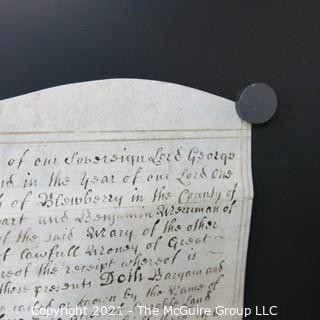 of our Sovereign Lord George
nd in the Year of our Lord One
of Blewberry in the County of
part and Benjamin Merriman of
of the said Mary of the other
lawfull Money of Great
reof the receipt whereof is
these presents Doth Bargain and
called or known by the Name of
land
Copyright 2021 - The McGuire Group LLC